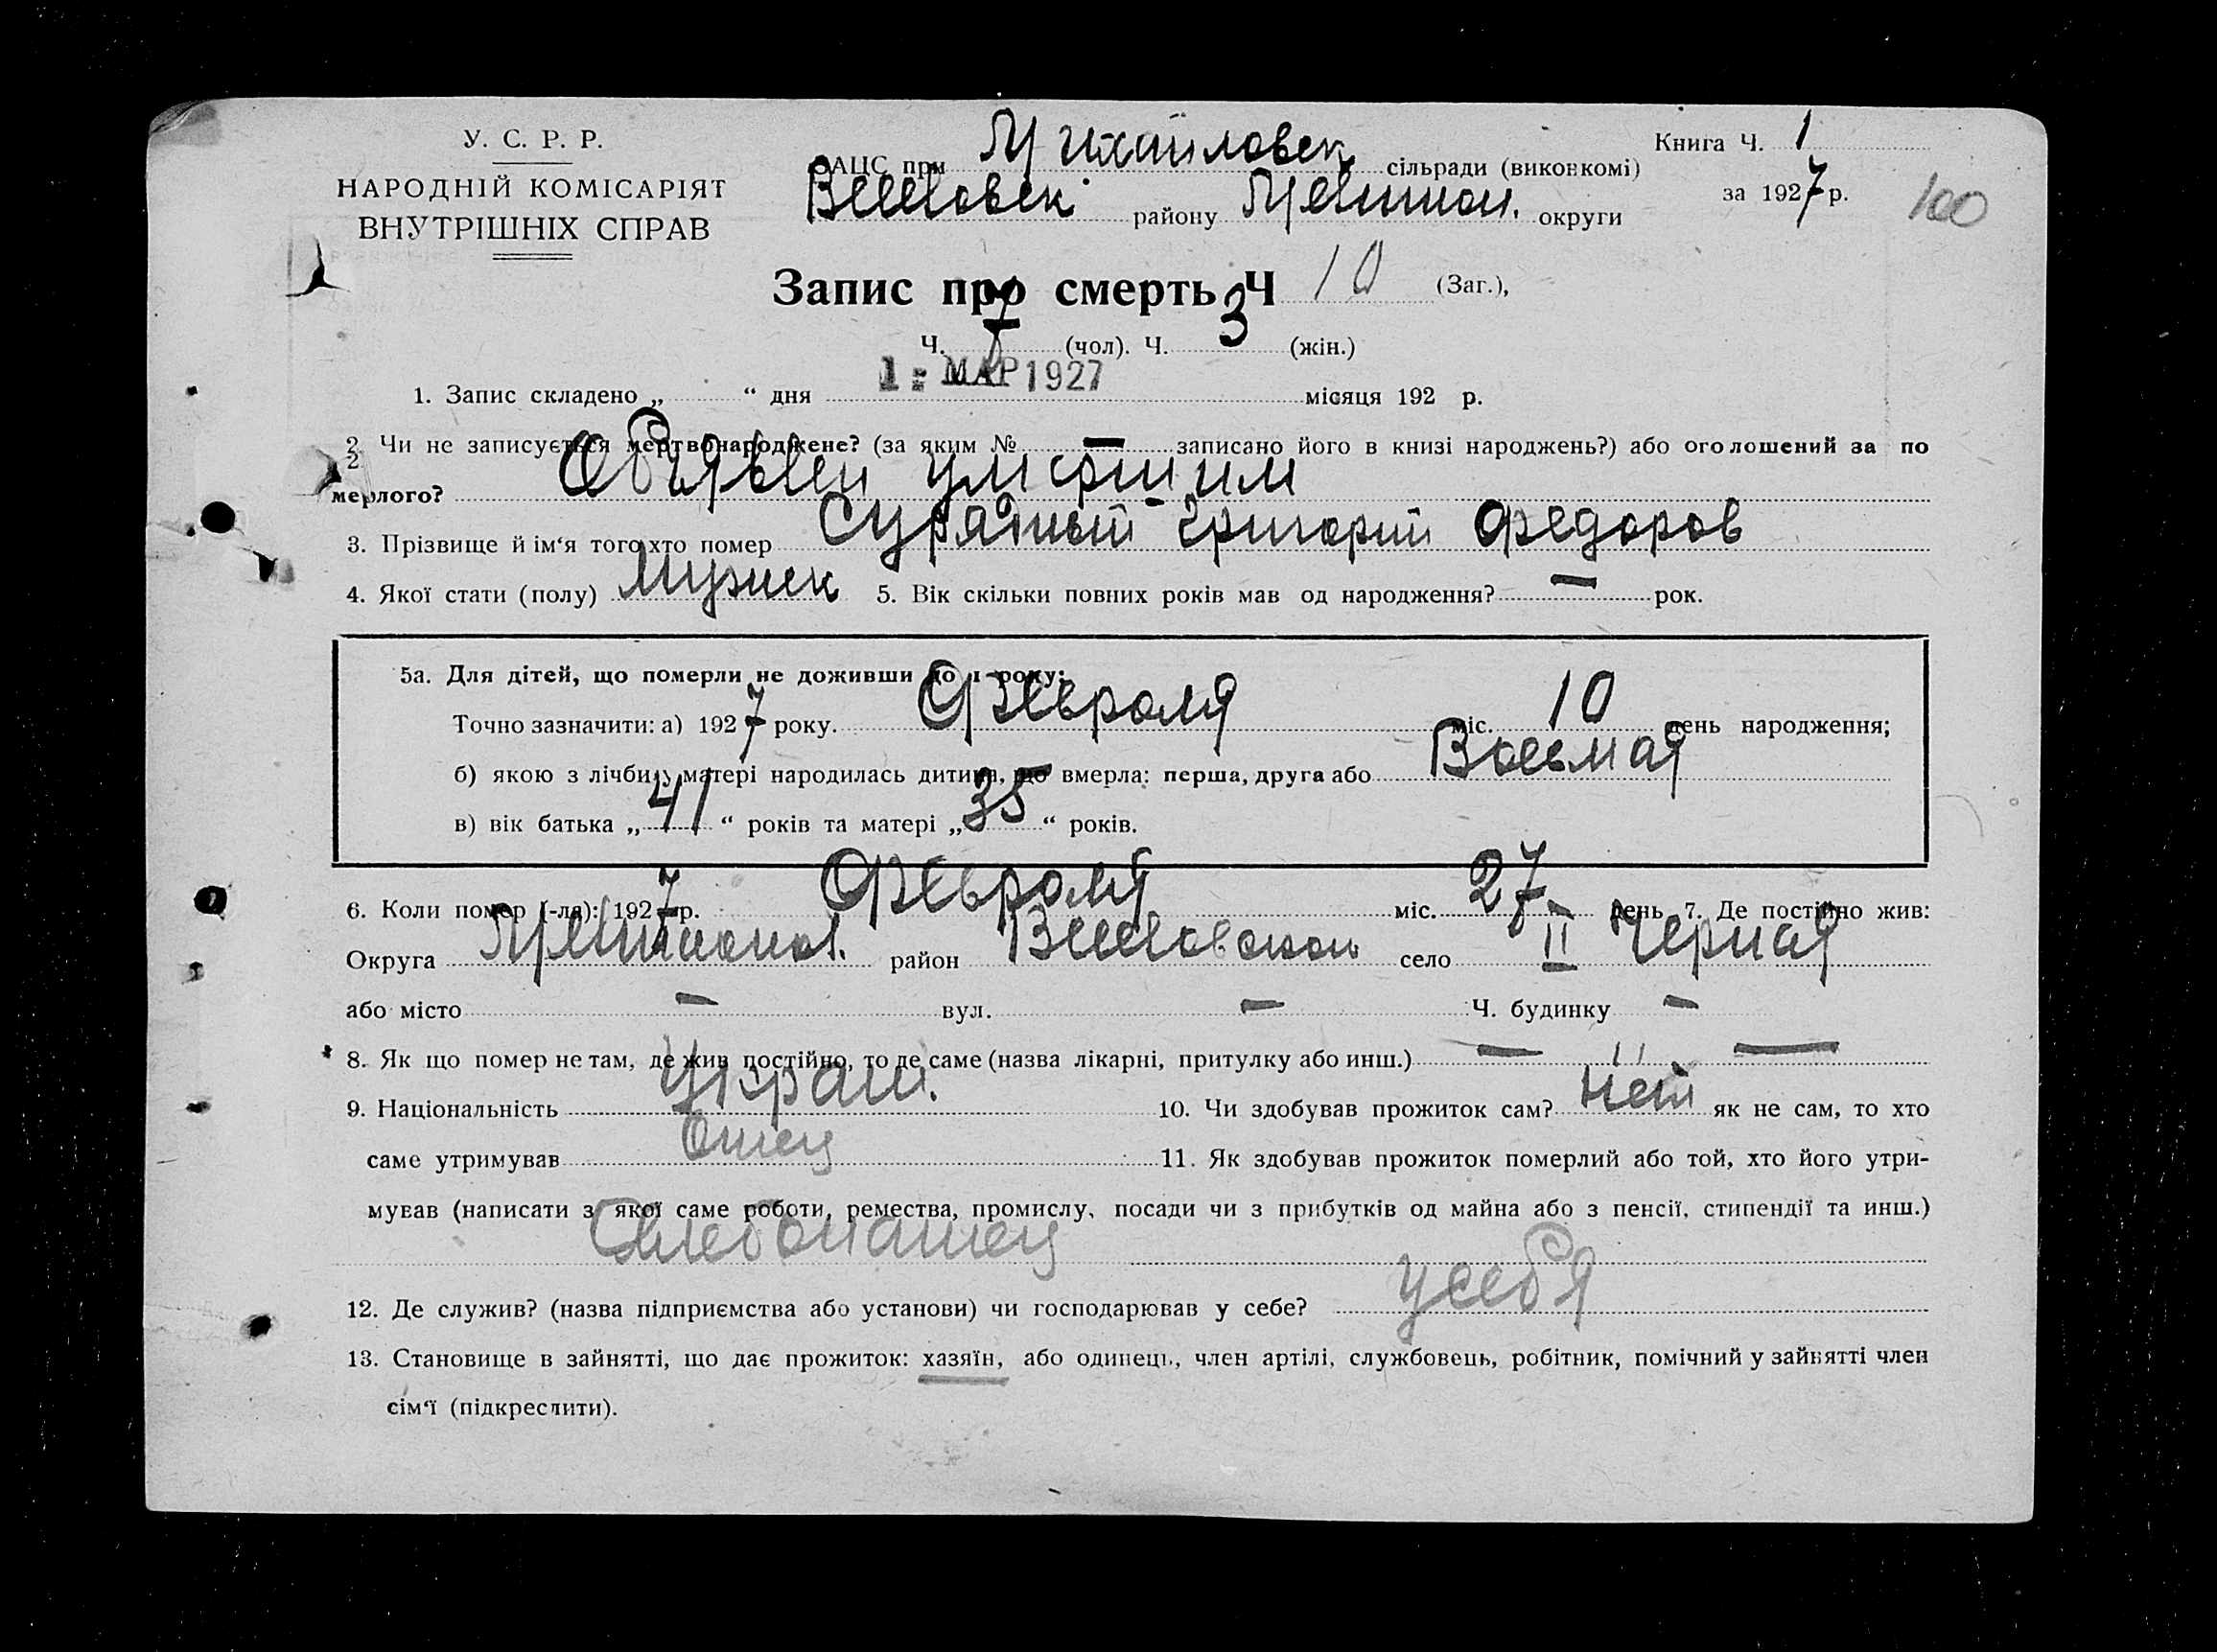 У. С. Р. Р.
НАРОДНІЙ КОМІСАРІЯТ
ВНУТРІШНІХ СПРАВ
ЗАЦС при Михайловск сільради (виконкомі)
района округи
Книга Ч. 1
за 1927 р.
100
Запис про смерть Ч 10 (Заг.),
Ч. 7 (чол). Ч. 3 (жін.)
1. Запис складено „ “ дня 1 - МАР 1927 місяця 192 р.
2. Чи не записується мертвонароджене? (за яким № — записано його в книзі народжень?) або оголошений за по
мерлого? Объявлен умершим
3. Прізвище й ім‘я того хто помер Григорий Федоров
4. Якої стати (полу) Мужск 5. Вік скільки повних років мав од народження? — рок.
5а. Для дітей, що померли не доживши до 1 року:
Точно зазначити: а) 1927 року. Февраля міс. 10 день народження;
б) якою з лічби у матері народилась дитина, що вмерла: перша, друга або Восьмая
в) вік батька „ 41 “ років та матері „ 35 “ років.
6. Коли помер (-ла): 1927 р. Февраля міс. 27 день 7. Де постійно жив:
Округа район село II Черная
або місто — вул. — Ч. будинку —
8. Як що помер не там, де жив постійно, то де саме (назва лікарні, притулку або инш.) — —
9. Національність Украин. 10. Чи здобував прожиток сам? Нет як не сам, то хто
саме утримував Отец 11. Як здобував прожиток померлий або той, хто його утри-
мував (написати з якої саме роботи, ремества, промислу, посади чи з прибутків од майна або з пенсії, стипендії та инш.)
Хлебопашец
12. Де служив? (назва підприємства або установи) чи господарював у себе? у себя
13. Становище в зайнятті, що дає прожиток: хазяїн, або одинець, член артілі, службовець, робітник, помічний у зайнятті член
сім‘ї (підкреслити).